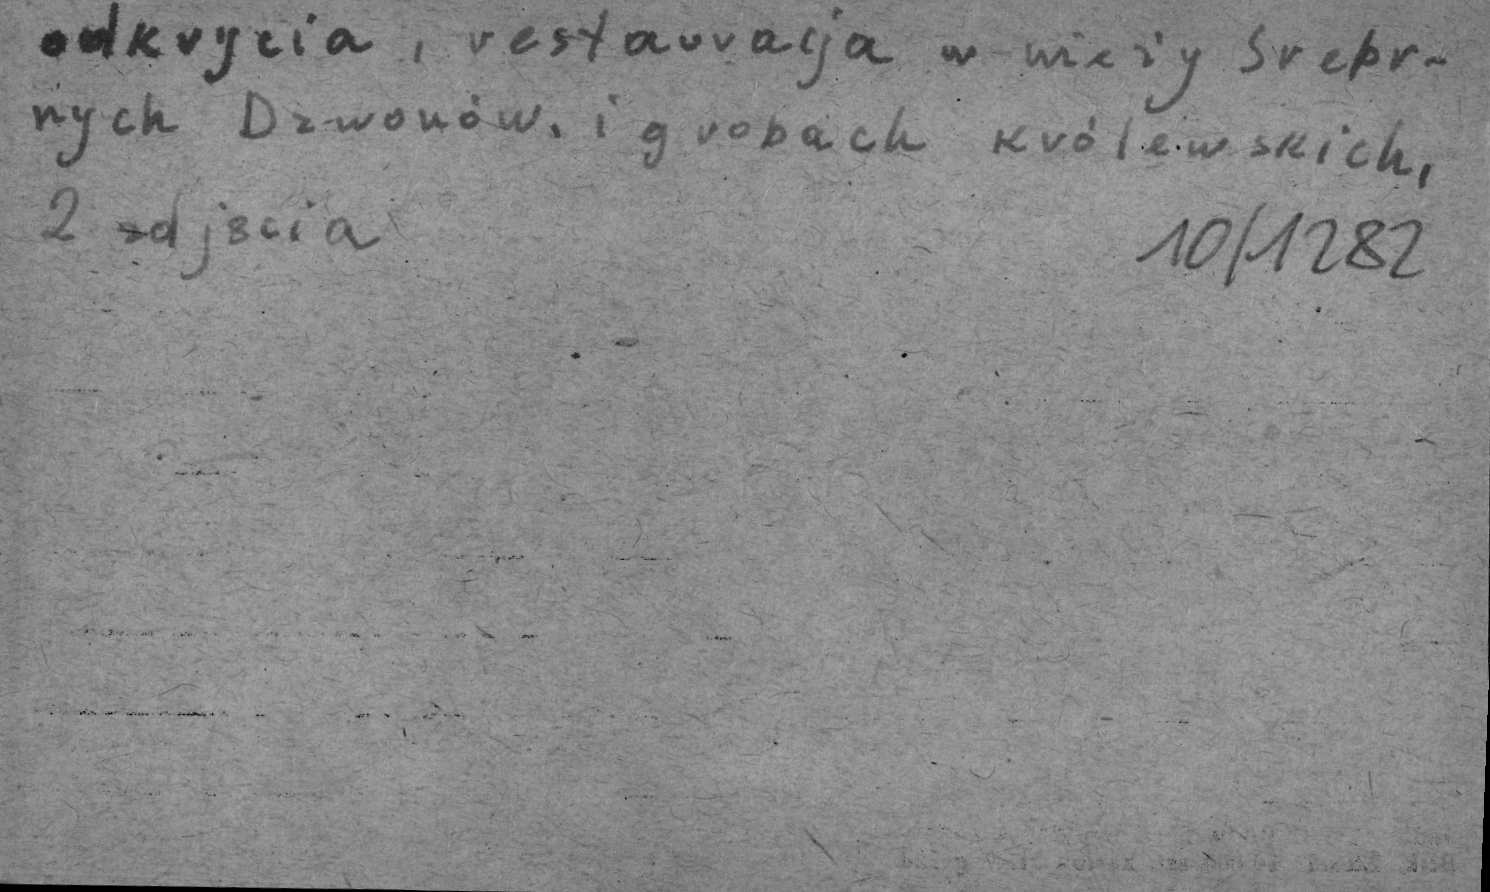 odkrycia, restauracja w wieży Srebr-
nych Dzwonów. i grobach królewskich,
2 zdjęcia 10/1282